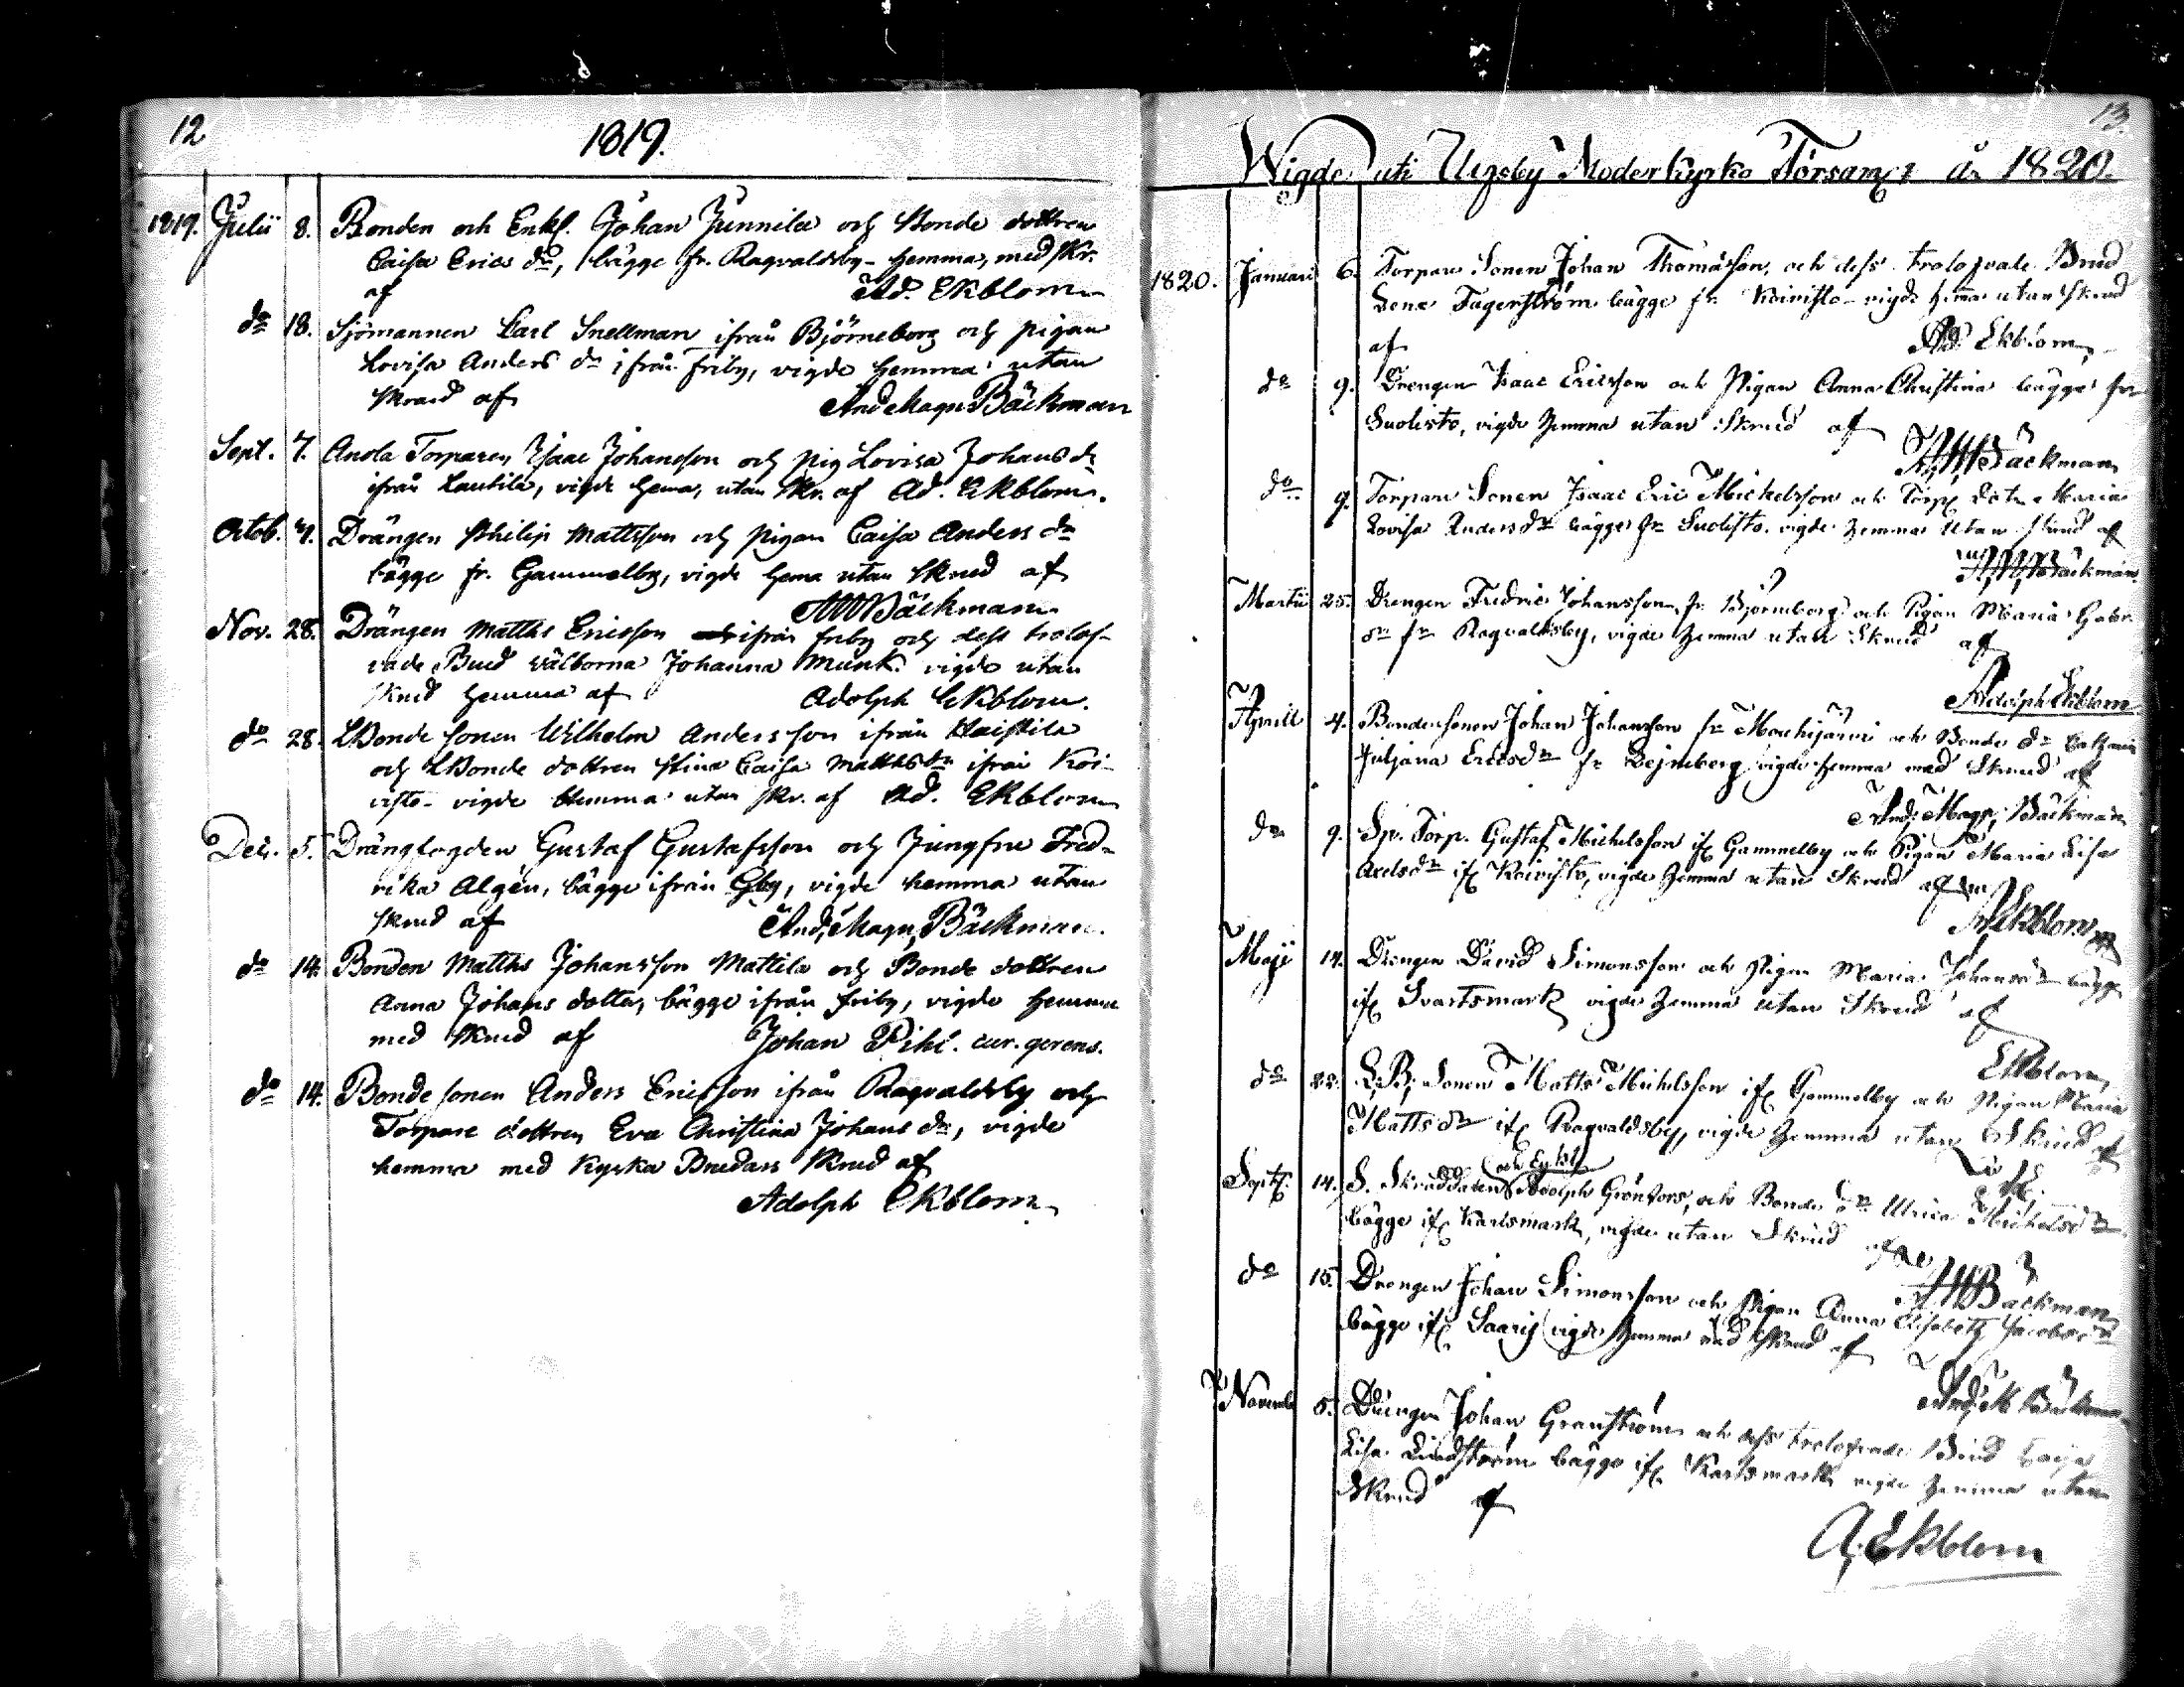 12
1819.
1819. Julii 8. Bonden och Enkl. Johan Junnila och Bonde dottren
Caisa Erics dr, bägge fr. Ragvaldsby - hemma, med Skr.
af Ad. Ekblom
do 18. Sjömannen Carl Snellman ifrån Björneborg och pigan
Lovisa Anders dr ifrån Friby, vigde hemma utan
skrud af And Magn Bäckman
Sept. 7. Anola Torparen Isaac Johansson och pig Lovisa Johans dr
ifrån Lautila, vigde hema, utan skr. af Ad. Ekblom.
Octob. 4. Drängen Philip Mattsson och pigan Caisa Anders dr
bägge fr. Gammelby, vigde hema utan Skrud af
AMBäckman
Nov. 28. Drängen Matths Ericsson ifrån Friby och dess trolof-
vade Brud välborna Johanna Munk. vigde utan
skrud hemma af Adolph Ekblom.
do 28. LBonde sonen Wilhelm Andersson ifrån Haistila
och LBonde dottren Stina Caisa Matthsdr ifrån Koi-
visto - vigde hemma utan skr. af Ad. Ekblom
Dec. 5. Drängfogden Gustaf Gustafsson och Jungfru Fred-
rika Algén, bägge ifrån Gby, vigde hemma utan
skrud af And. Magn. Bäckman.
do 14. Bonden Matths Johansson Mattila och Bonde dottren
Anna Johans dotter, bägge ifrån Friby, vigde hemma
med skrud af Johan Pihl. cur. gerens.
do 14. Bonde sonen Anders Ericsson ifrån Ragvaldsby och
Torpare dottren Eva Christina Johans dr, vigde
hemma med Kyrka Brudars Skrud af
Adolph Ekblom
13.
Wigde uti Ulfsby Moderkyrko Församl: år 1820.
1820. Januari 6. Torpare Sonen Johan Thomasson, och dess trolofvade Brud
Lena Fagerström bägge fr. Koivisto - vigde hemma utan Skrud
af Ad. Ekblom
do 9. Drengen Isaac Ericsson och Pigan Anna Christina bägge fr
Suolisto, vigde hemma utan Skrud af
AMBäckman
do 9. Torpare Sonen Isaac Eric Michelsson och Torp: Dotr Maria
Lovisa Anders dr bägge fr Suolisto. vigde hemma utan skrud af
AMBäckman
Martii 25. Drengen Fredric Johansson fr. Björneborg och Pigan Maria Gabr.
dr fr Ragvaldsby, vigde hemma utan Skrud af
Adolph Ekblom
Aprill 4. Bondesonen Johan Johansson fr Mouhijärvi och Bonde dr Catharin
Juljana Ericsdr fr Lejneberg vigde hemma med Skrud af
And: Magn: Bäckman
do 9. Sv. Torp. Gustaf Michelsson if: Gammelby och Pigan Maria Lisa
Axelsdr if: Koivisto, vigde hemma utan Skrud af
AEkblom
Maji 14. Drengen David Simonsson och Pigan Maria Johansdr bägge
if: Svartsmark vigde hemma utan Skrud af
Ekblom
do 22. L.B. Sonen Matts Michelsson if: Gammelby och Pigan Maria
Matts dr if: Ragvaldsby, vigde hemma utan Skrud af
AE.
och Enkl.
Sept: 14. S. Skräddaren Adolph Grönfors, och Bonde dr Ulrica Michelsdr
bägge if: Karlsmark, vigde utan Skrud af
AMBäckman
do 15. Drengen Johan Simonsson och Pigan Anna Elisabeth Jacobsdr
bägge if: Saaris vigde hemma med Skrud af
And. M Bäckman
Novemb 5. Drängen Johan Granström och dess trolofvade Brud Caisa
Lisa Lindström bägge if: Karlsmark vigde hemma utan
Skrud af
A. Ekblom